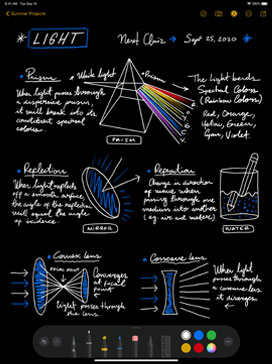 9:41 AM Tue Sep 15
Summer Projects
* LIGHT
Next Quiz → Sept 25, 2020
* Prism
White light
Prism
When light passes through
a dispersive prism,
it will break into its
constituent spectral
colors.
PRISM
The light bends
Spectral Colors
(Rainbow Colors)
Red, Orange,
Yellow, Green,
Violet
* Reflection
When light reflects
off a smooth surface,
the angle of the reflection
will equal the angle
of incidence.
MIRROR
* Refraction
Change in direction
of waves when
passing through one
medium into another
(eg. air and water)
WATER
* Convex lens
FOCAL POINT
Converges
at focal
point
Light passes through
the lens
* Concave lens
When light
passes through
a concave lens
it diverges